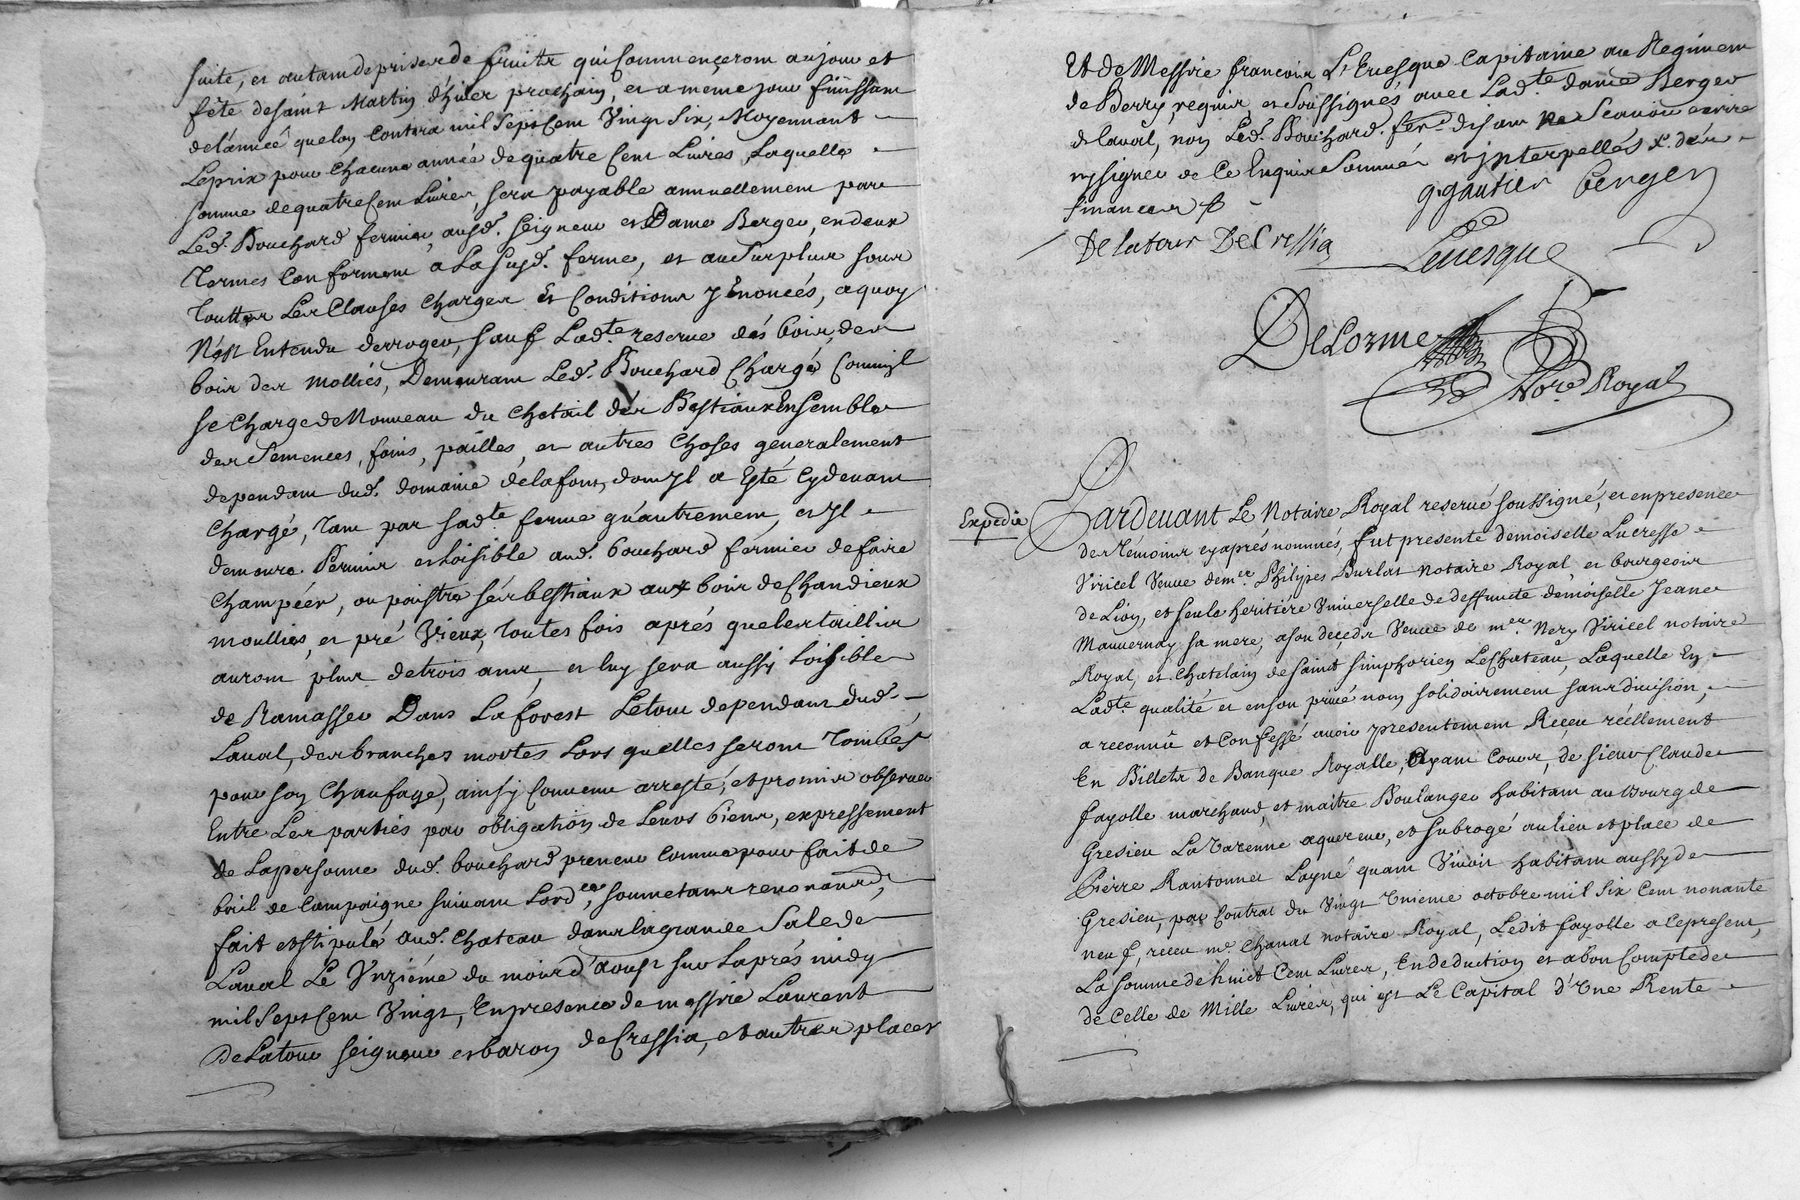 suite, et autant de prises de fruits qui Commençeront au jour et
fête de saint Martin d'hiver prochain, et a meme jour finissant
de l'année que lon Contera mil Sept Cent Vingt Six, Moyennant
Le prix pour Chacune année de quatre Cent Livres, Laquelle
somme de quatre Cent Livres, sera payable annuellement par
Led. Bouchard fermier, ausd. Seigneur et Dame Berger, en deux
Termes Conformem a La susd. ferme, et au Surplus sous
Touttes Les Clauses Charges Et Conditions y Enoncés, a quoy
N'est Entendu derroger, sauf Lad.te reserve dés bois, des
bois des molliés, Demeurant Led. Bouchard Chargé Comme il
se Charge de Nouveau du Chetail dés Bestiaux Ensemble
des Semences, foins, pailles, et autres Choses generalement
dependant dud. domaine de lafont, dont Il a Esté Cydevant
Chargé, Tant par sadte ferme qu'autrement, et Il
demeure Permis et loisible aud. bouchard fermier de faire
Champéér, ou paistre sés bestiaux aux bois de Chandieux
moulliés, et pré Vieux, Toutes fois aprés que les taillis
auront plus de trois ans, et luy sera aussy loisible
de Ramasser Dans La forest Letour dependant dud.
Laval, des branches mortes Lors quelles seront Tombés
pour son Chaufage, ainsy Convenu arresté, et promis observer
Entre Les parties par obligation de Leurs biens, expressement
de La personne dud. bouchard preneur Comme pour fait de
bail de Campaigne suivant Lord.ce, soumetans renonand.
fait et stipulé aud. Chateau dans la grande Sale de
Laval Le Unziéme du mois d'aoust sur Laprés midy
mil Sept Cent Vingt, En presence de messire Laurent
De Latour seigneur et baron de Cressia, et autres places
Et de Messire francois L'Evesque Capitaine au Regiment
de Berry, requis, et Soussignés avec Lad.te dame Berger
de Laval, non Led. Bouchard fer.r disant ne Scavoir ecrire
ny signer de Ce Enquis Sommés et interpellés
g gautier berger
De latour De Cressia
Levesque
DeLorme
No.re Royal
Expedié
Pardevant Le Notaire Royal reservé soussigné, et en presence
des Témoins cy aprés nommés, fut presente demoiselle Lucresse
Viricel Veuve de m.er Philipes Burlat Notaire Royal et bourgeois
de Lion, et seule heritiere Universelle de deffuncte demoiselle Jeane
Mauvernay sa mere, a son deçéds Veuve de m.er Nery Viricel notaire
Royal, et Chatelain de Saint Simphorien Le Chateau, Laquelle En
Ladte. qualité et en son privé nom solidairement sans division,
a reconnû et Confessé avoir presentement Reçeu réellement
En Billets de Banque Royalle, Ayant Cours, de sieur Claude
fayolle marchand, et maître Boulanger habitant au Bourg de
Gresieu La Varenne aquereur, et subrogé au lieu et place de
Pierre Rantonnet Layné quant Vivoit habitant aussy de
Gresieu, par Contrat du Vingt Unieme octobre mil six Cent nonante
neuf, receu m.e Chanal notaire Royal, Ledit fayolle a Ce present,
La somme de huict Cent Livres, En deduction et a bon Compte de
de Celle de Mille Livres, qui est Le Capital d'Une Rente